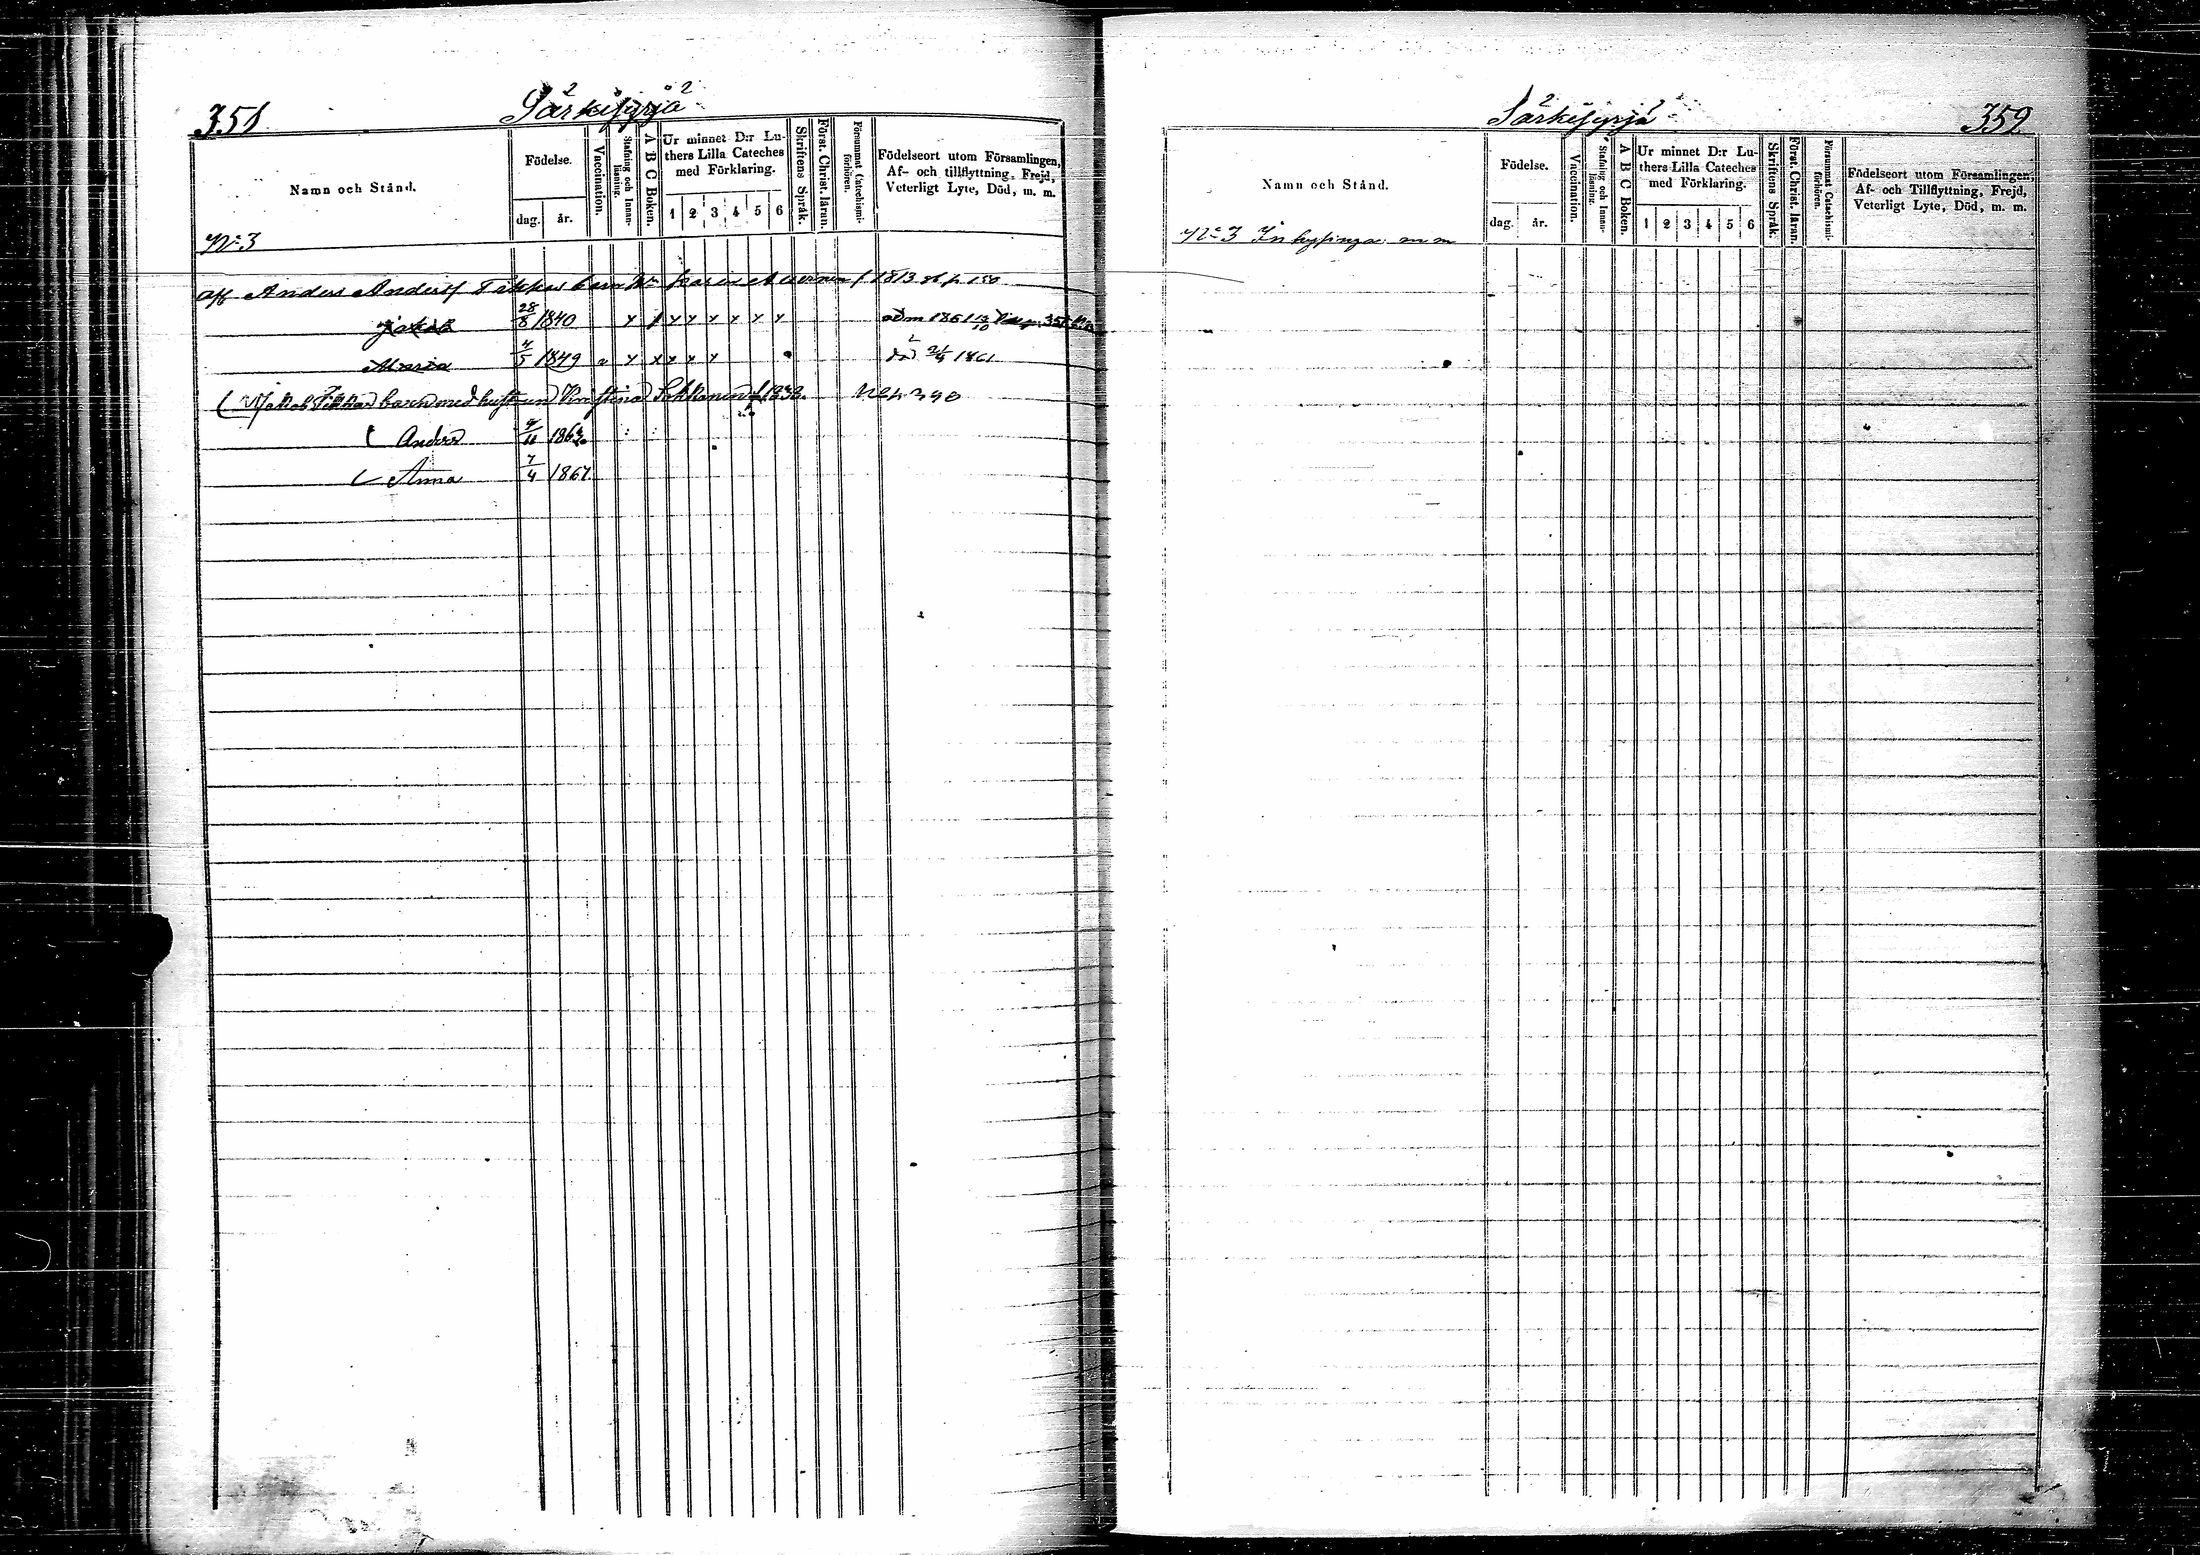 358
Särkisyrjä
Namn och Stånd.
Födelse.
dag.
år.
Vaccination.
Stafning och Innan-
läsning.
A B C Boken.
Ur minnet D:r Lu-
thers Lilla Cateches
med Förklaring.
1 2 3 4 5 6
Skriftens Språk.
Först. Christ. läran.
Försummat Catechismi-
förhören.
Födelseort utom Församlingen,
Af- och tillflyttning, Frejd,
Veterligt Lyte, Död, m. m.
No 3
Anders Anders Tikkas barn Karin 1813
Jakob 28/8 1840 x x x x x x x
Maria 4/5 1849 x x x x x 1861
Jakob Tikka barn med hustrun Kristina
Anders 186
Anna 7/4 1867.
Särkisyrjä
359
Namn och Stånd.
Födelse.
dag.
år.
Vaccination.
Stafning och Innan-
läsning.
A B C Boken.
Ur minnet D:r Lu-
thers Lilla Cateches
med Förklaring.
1 2 3 4 5 6
Skriftens Språk.
Först. Christ. läran.
Försummat Catechismi-
förhören.
Födelseort utom Församlingen,
Af- och Tillflyttning, Frejd,
Veterligt Lyte, Död, m. m.
No 3 Inhysinga m m